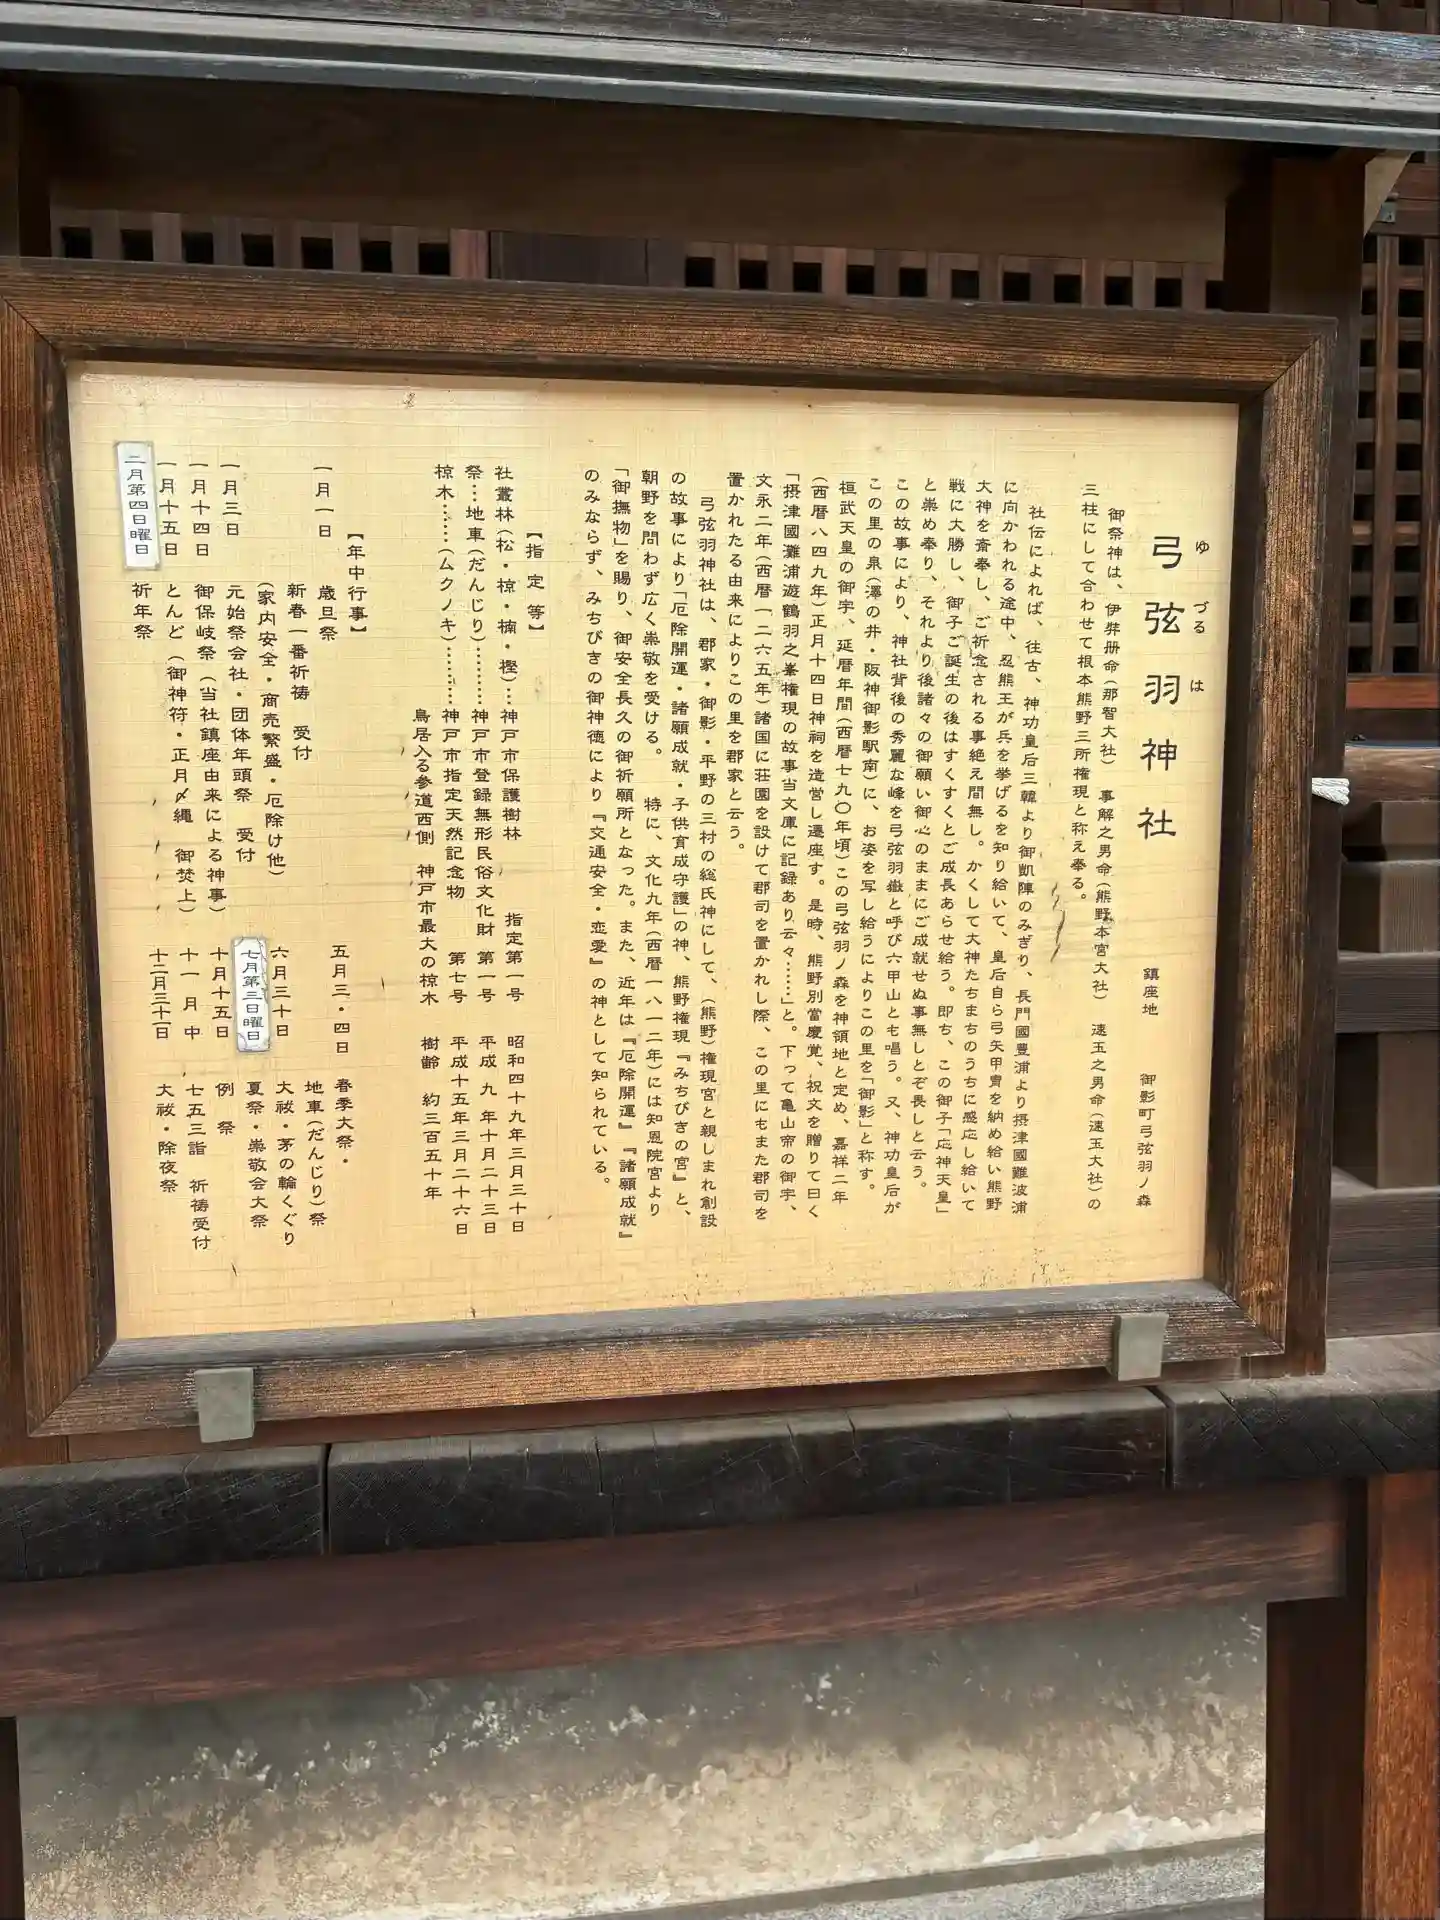 弓弦羽神社
ゆづるは
鎮座地 御影町弓弦羽ノ森
御祭神は、伊弊册命(那智大社) 事解之男命(熊野本宮大社) 速玉之男命(速玉大社)の
三柱にして合わせて根本熊野三所権現と称え奉る。
社伝によれば、往古、神功皇后三韓より御凱陣のみぎり、長門國豊浦より摂津國難波浦
に向かわれる途中、忍熊王が兵を挙げるを知り給いて、皇后自ら弓矢甲冑を納め給い熊野
大神を斎奉し、ご祈念される事絶え間無し。かくして大神たちまちのうちに感応し給いて
戦に大勝し、御子ご誕生の後はすくすくとご成長あらせ給う。即ち、この御子「応神天皇」
と崇め奉り、それより後諸々の御願い御心のままにご成就せぬ事無しとぞ畏しと云う。
この故事により、神社背後の秀麗な峰を弓弦羽嶽と呼び六甲山とも唱う。又、神功皇后が
この里の泉(澤の井・阪神御影駅南)に、お姿を写し給うによりこの里を「御影」と称す。
桓武天皇の御宇、延暦年間(西暦七九〇年頃)この弓弦羽ノ森を神領地と定め、嘉祥二年
(西暦八四九年)正月十四日神祠を造営し遷座す。是時、熊野別當慶覚、祝文を贈りて曰く
「摂津國灘浦遊鶴羽之峯権現の故事当文庫に記録あり云々……」と。下って亀山帝の御宇、
文永二年(西暦一二六五年)諸国に荘園を設けて郡司を置かれし際、この里にもまた郡司を
置かれたる由来によりこの里を郡家と云う。
弓弦羽神社は、郡家・御影・平野の三村の総氏神にして、(熊野)権現宮と親しまれ創設
の故事により「厄除開運・諸願成就・子供育成守護」の神、熊野権現『みちびきの宮』と、
朝野を問わず広く崇敬を受ける。 特に、文化九年(西暦一八一二年)には知恩院宮より
「御撫物」を賜り、御安全長久の御祈願所となった。また、近年は『厄除開運』『諸願成就』
のみならず、みちびきの御神徳により『交通安全・恋愛』の神として知られている。
【指定等】
社叢林(松・椋・楠・樫)… 神戸市保護樹林 指定第一号 昭和四十九年三月三十日
祭…地車(だんじり)………… 神戸市登録無形民俗文化財 第一号 平成九年十月二十三日
椋木……(ムクノキ)………… 神戸市指定天然記念物 第七号 平成十五年三月二十六日
鳥居入る参道西側 神戸市最大の椋木 樹齢 約三百五十年
【年中行事】
一月一日 歳旦祭
新春一番祈祷 受付
(家内安全・商売繁盛・厄除け他)
一月三日 元始祭会社・団体年頭祭 受付
一月十四日 御保岐祭(当社鎮座由来による神事)
一月十五日 とんど(御神符・正月〆縄 御焚上)
二月第四日曜日 祈年祭
五月三・四日 春季大祭・
地車(だんじり)祭
六月三十日 大祓・茅の輪くぐり
七月第三日曜日 夏祭・崇敬会大祭
十月十五日 例祭
十一月中 七五三詣 祈祷受付
十二月三十一日 大祓・除夜祭